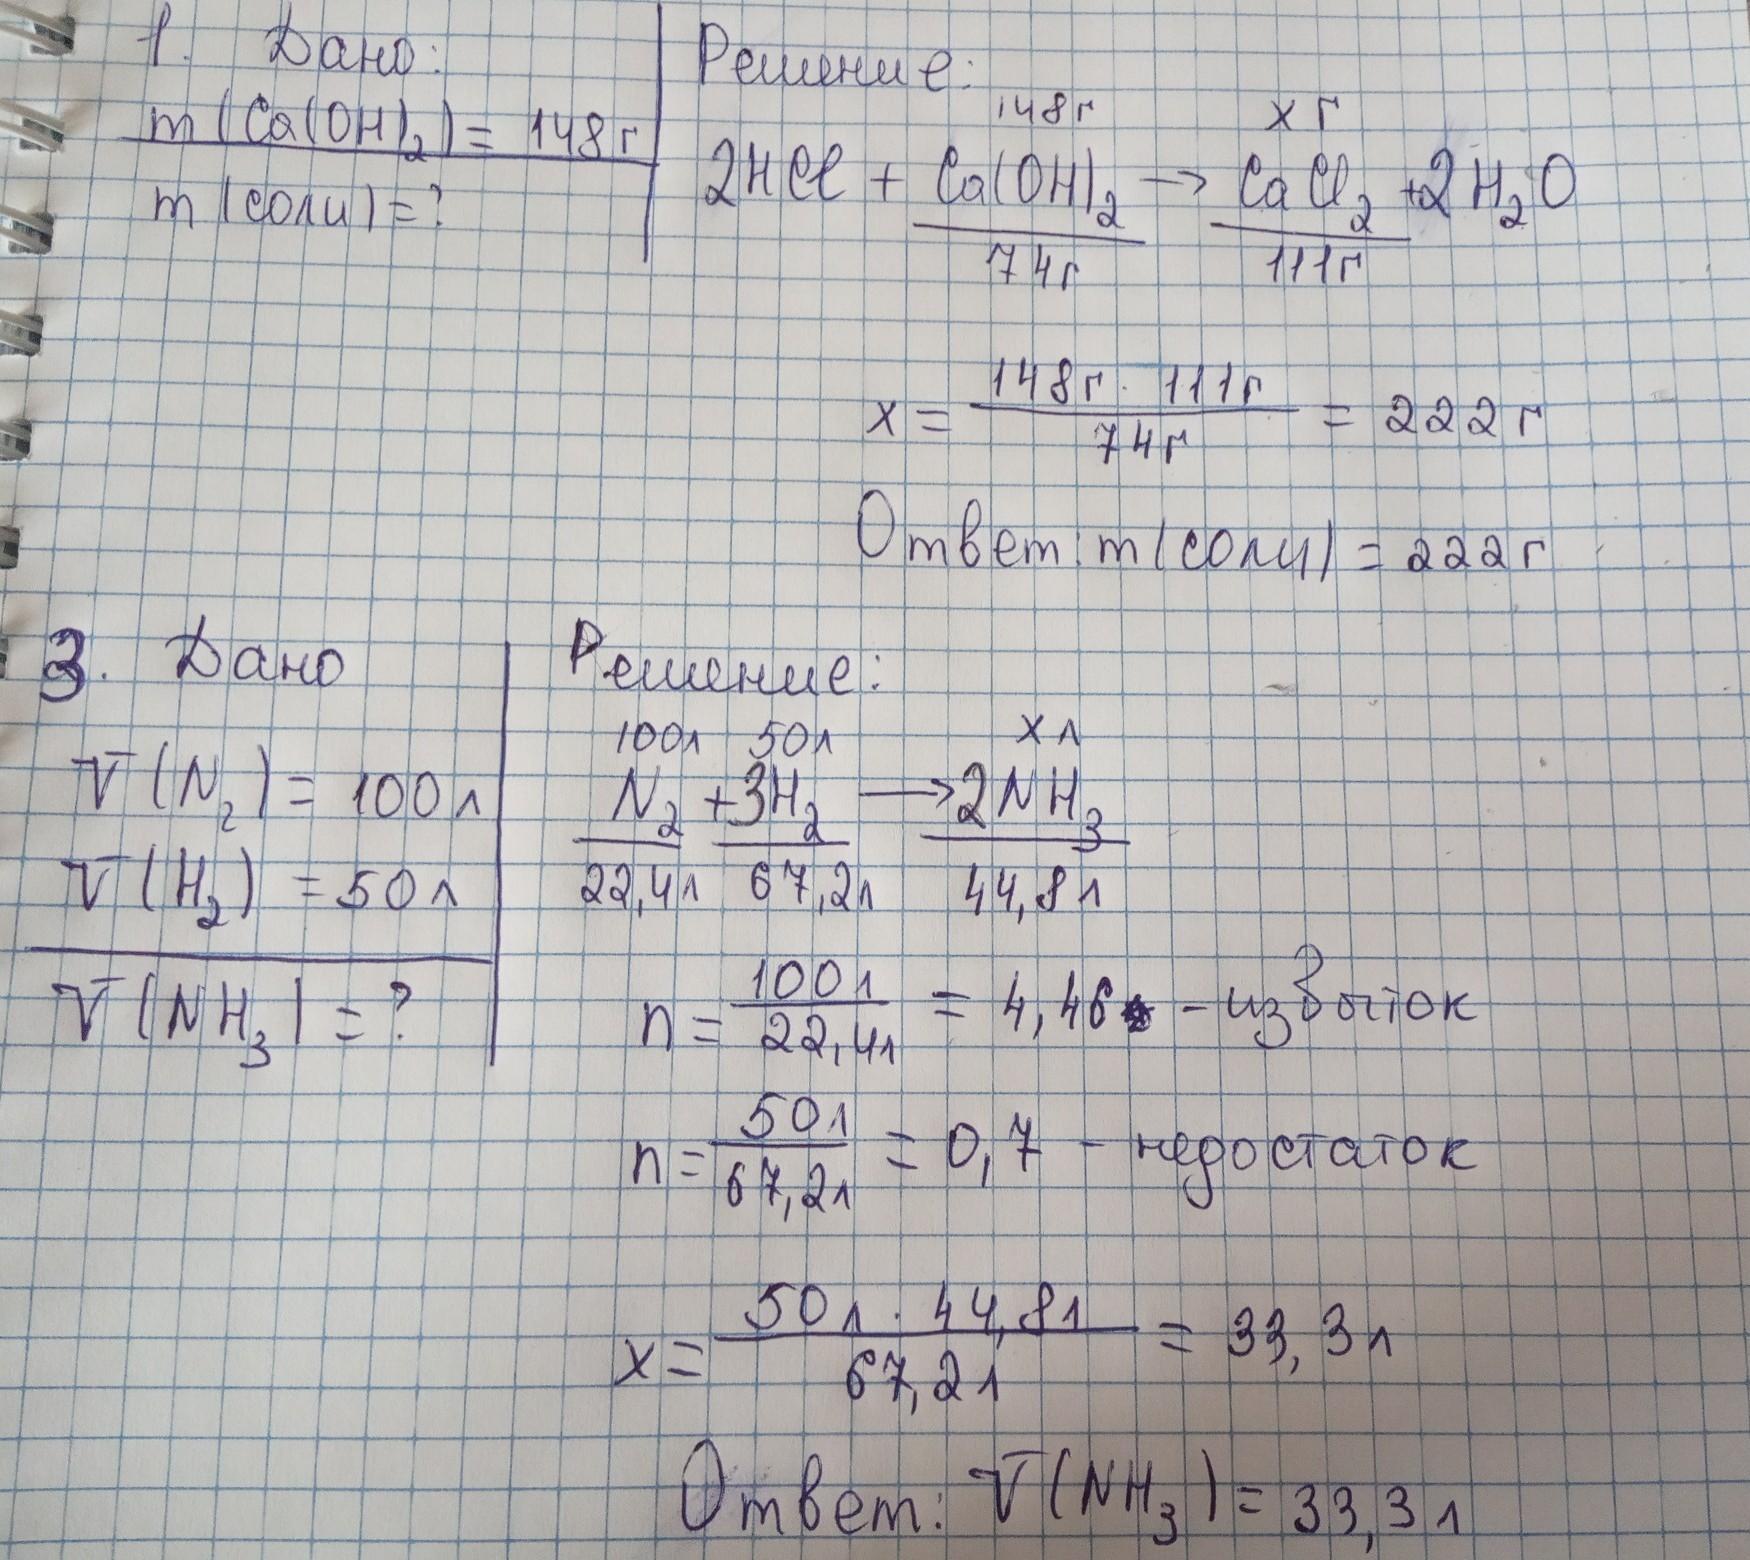 1. Дано:
m(Ca(OH)2) = 148г
m(соли) = ?
Решение:
148г хг
2HCl + Ca(OH)2 → CaCl2 + 2H2O
74г 111г
x = 148г · 111г / 74г = 222г
Ответ: m(соли) = 222г
3. Дано
V(N2) = 100л
V(H2) = 50л
V(NH3) = ?
Решение:
100л 50л хл
N2 + 3H2 → 2NH3
22,4л 67,2л 44,8л
n = 100л / 22,4л = 4,46 - извыток
n = 50л / 67,2л = 0,7 - недостаток
x = 50л · 44,8л / 67,2л = 33,3л
Ответ: V(NH3) = 33,3л